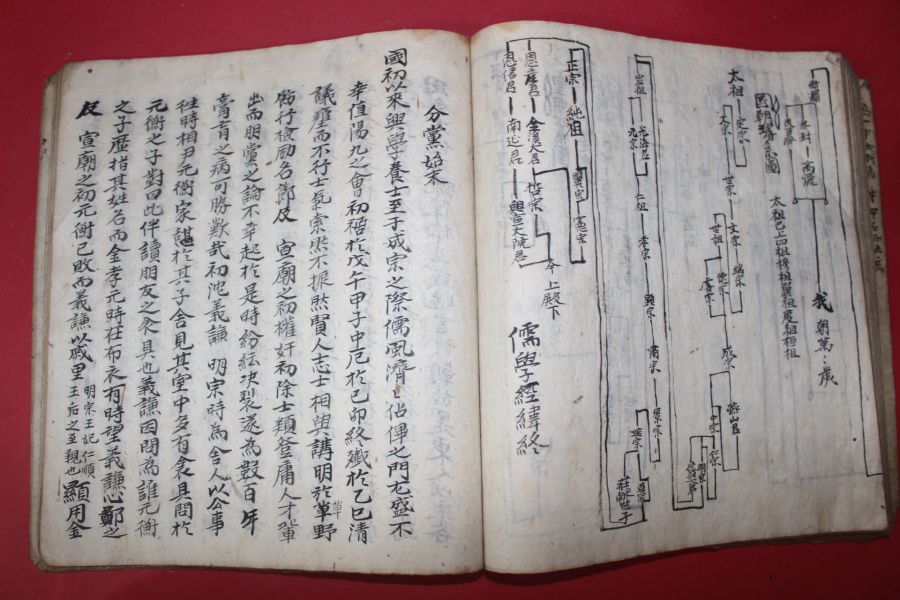 高麗
我朝萬々歲
太祖巳上四祖穆祖翼祖度祖桓祖
太祖
定宗
太宗
世宗
文宗
端宗
世祖
德宗
睿宗
成宗
燕山君
中宗
仁宗
明宗
宣祖
光海君
元宗
仁祖
孝宗
顯宗
肅宗
景宗
英宗
莊獻世子
正宗
純祖
翼宗
憲宗
恩彦君
全溪大君
哲宗
恩信君
南延君
興宣大院君
今上殿下
儒學經緯終
分黨始末
國初以來興學養士至于成宗之際儒風濟々佔俾之門尤盛不
幸值陽九之會初稿於戊午甲子中厄於己卯終殲於乙巳清
議壅而不行士氣索然不振然賢人志士相與講明於草野
飭行檢勵名節及 宣廟之初權奸初除士類登庸人才輩
出而朋黨之論不幸起於是時紛紜決裂遂為數百年
膏肓之病可勝歎哉初沈義謙 明宗時為舍人以公事
往時相尹元衡家諶於其子舍見其室中多有衾具問於
元衡之子對曰此伴讀朋友之衾具也義謙因問為誰元衡
之子歷指其姓名而金孝元時在布衣有時望義謙心鄙之
及 宣廟之初元衡已敗而義謙以戚里 明宗王妃仁順王后之至親也 顯用金